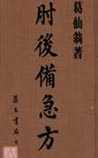 葛仙翁著
肘後備急方